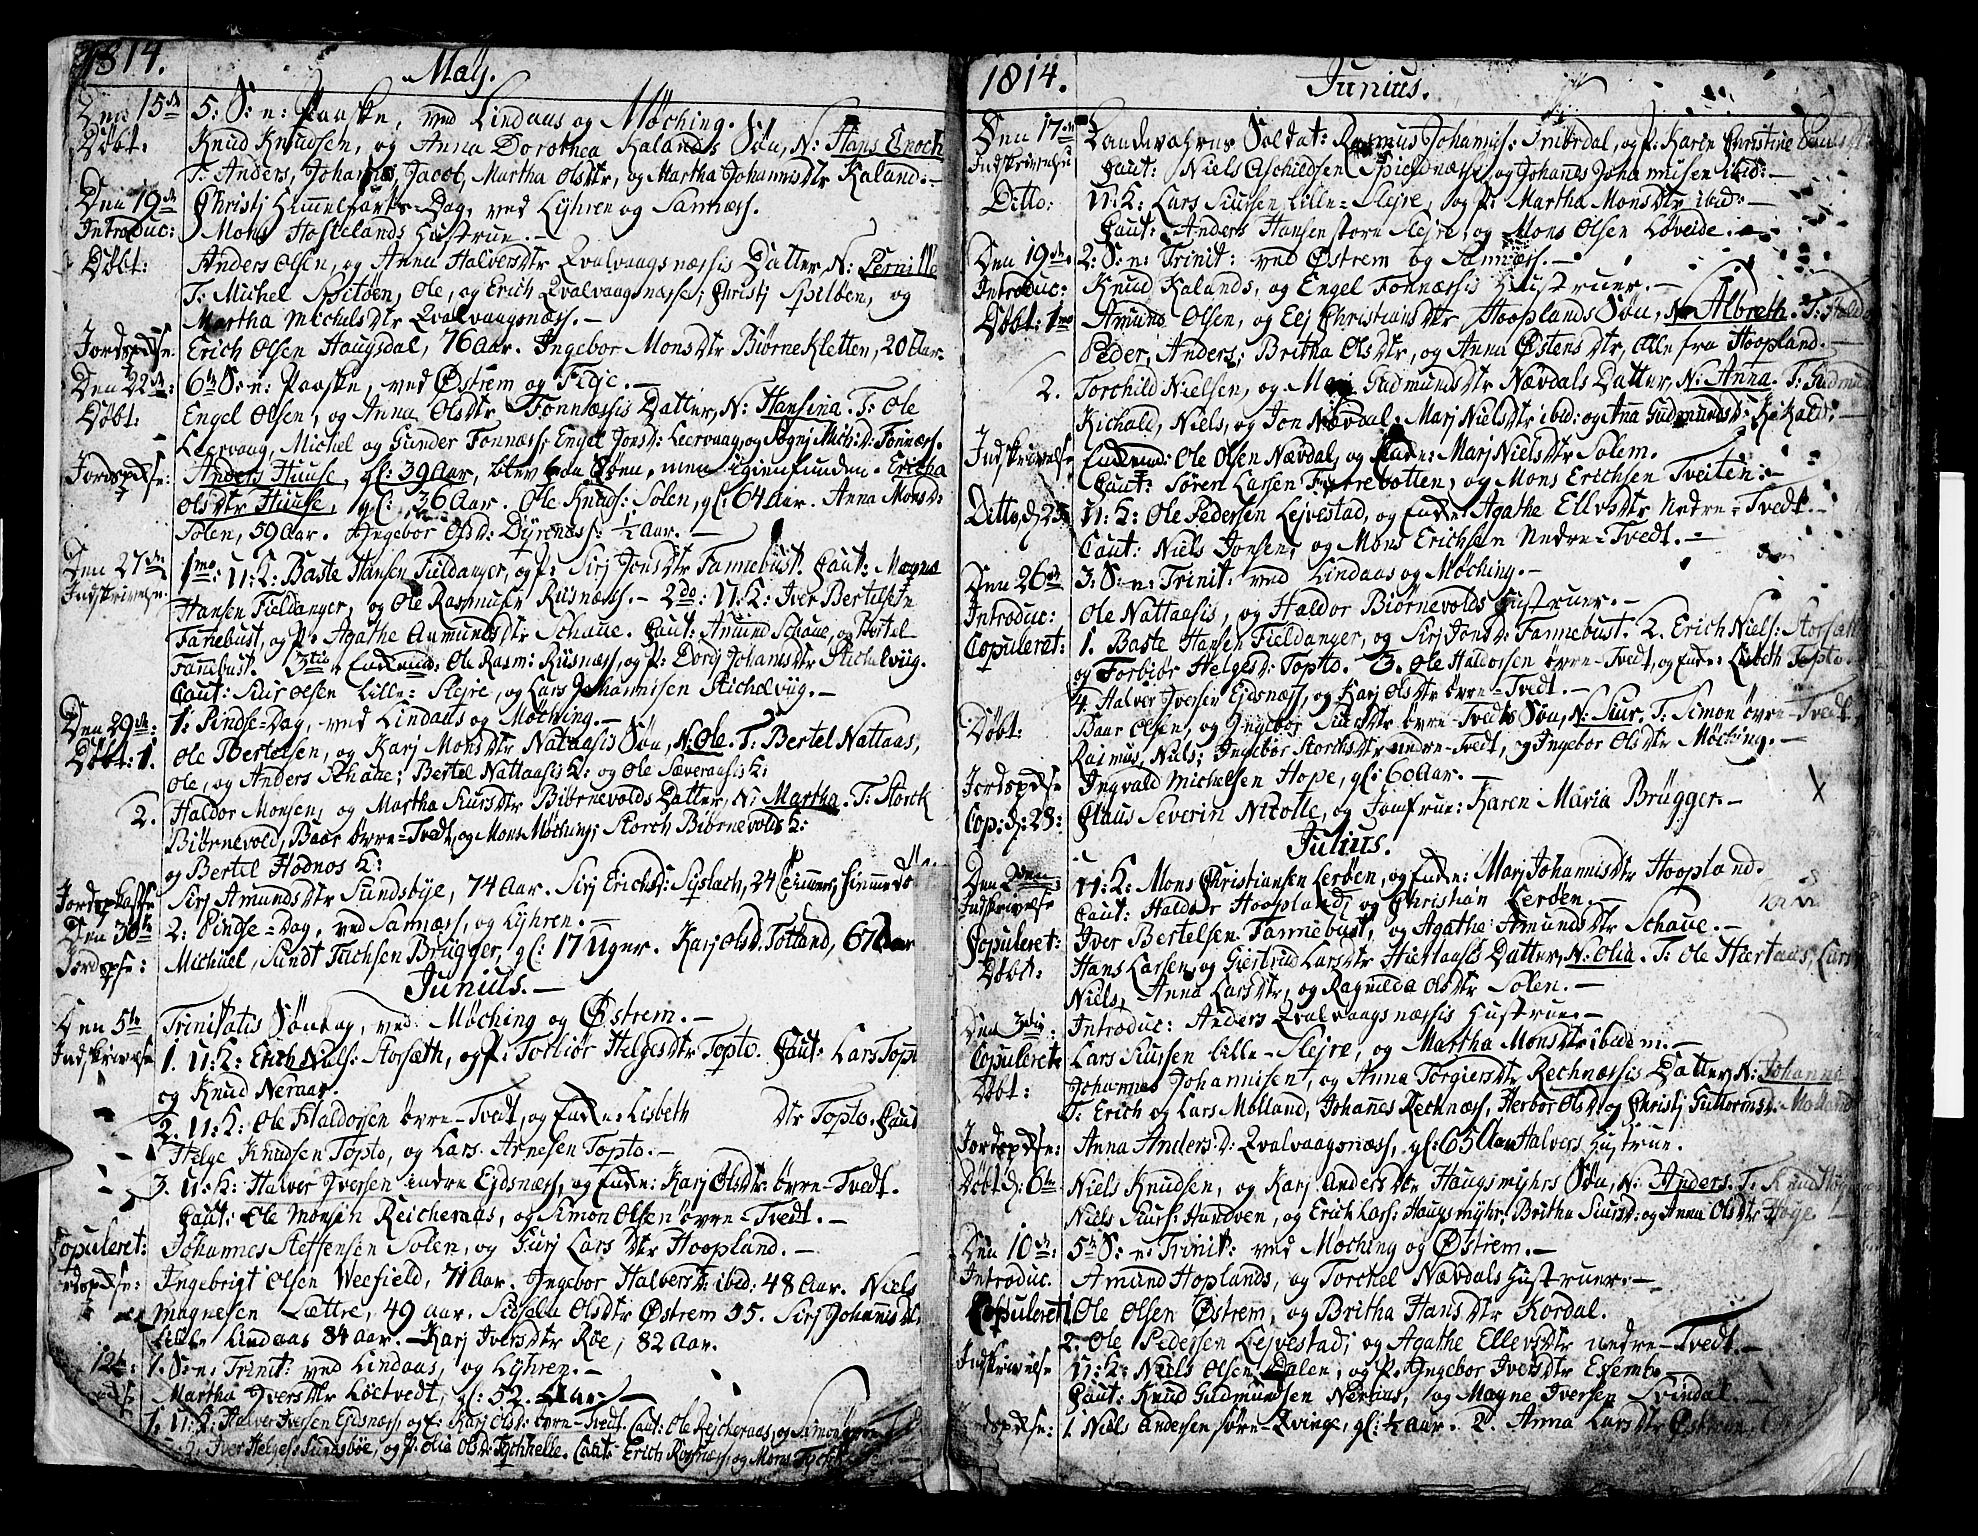 1814. May.
Den 15de 5. S: n: Paaske, ved Lindaas og Møching.
Døbt: Knud Knudsen, og Anna Dorothea Kalands Søn, N: Hans Enoch
T: Anders, Johannes, Jacob, Martha Olsdtr, og Martha Johannisdtr Kaland.-
Den 19de Christj Himmelfarts-Dag, ved Lyhren og Sannæss.
Introduc: Mons Hostelands Hustrue.-
Døbt: Anders Olsen, og Anna Halversdtr Qvalvaagsnæssis Datter, N: Pernille
T: Michel Spitøen, Ole, og Erich Qvalvaagsnæsse; Christj Spitøen, og
Martha Michelsdtr Qvalvaagsnæss.-
Jordspdse: Erich Olsen Haugsdal, 76 Aar. Ingebor Monsdtr Biørnekletten, 20 Aar.
Den 22de: 6te S: n: Paaske, ved Østrem og Fedje.-
Døbt: Engel Olsen, og Anna Olsdtr Fonnæssis Datter, N: Hansina. T: Ole
Leervaag, Michel og Gunder Fonnæss; Engel Jonsd: Leervaag, og Søgnj Mich:d: Fonnæss.
Jordspdse: Anders Huuse, gl: 39 Aar, blev paa Søen, men igienfunden. Ericha
Olsdtr Huuse, gl: 36 Aar. Ole Knuds: Solen, gl: 64 Aar. Anna Monsd:
Solen, 59 Aar. Ingebor Olsd: Dyrenæss: ½ Aar.-
Den 27de 1mo: U: K: Baste Hansen Fieldanger, og P: Sirj Jonsdtr Fannebust. Caut: Magne
Indskrivelse: Hansen Fieldanger, og Ole Rasmusen Riisnæss.- 2do: U: K: Iver Bertelsen
Fanebust, og P: Agathe Amundsdtr Schaue. Caut: Amund Schaue, og Bertel
Fannebust. 3tio: Enkem: Ole Rasm: Riisnæss, og P: Dordj Johansdtr Stichelviig.
Caut: Siur Olsen Lille-Slejre, og Lars Johannisen Stichelviig.-
Den 29de: 1: Pindse-Dag, ved Lindaas og Møching.-
Døbt: 1. Ole Bertelsen, og Karj Monsdtr Nataasis Søn, N: Ole. T: Bertel Nattaas,
Ole, og Anders Schaue; Bertel Nattaasis K: og Ole Sæveraasis K:
2. Haldor Monsen, og Martha Siursdtr Biørnevolds Datter, N: Martha. T: Storck
Biørnevold, Baar øvre-Tvedt, og Mons Møching; Storch Biørnevolds K:
og Bertel Hodnos K:
Jordspkaste Sirj Amundsdtr Sundsbye, 74 Aar. Sirj Erichsd: Syslach, 24
Den 30te 2: Pindse-Dag, ved Sannæss, og Lyhren.-
Jordspse: Michael Sundt Tuchsen Brügger, gl: 17 Uger. Karj Olsd: Totland, 67 Aar
Junius.-
Den 5te Trinitatis Søndag, ved Møching og Østrem.-
Indskrivelse 1. U: K: Erich Niels: Storsæth, og P: Torbiør Helgesdtr Topto. Caut: Lars Topt
og Knud Neraas.
2. U: K: Ole Haldorsen øvre-Tvedt, og Enke: Lisbeth dtr Topto. Caut
Helge Knudsen Topto, og Lars Arnesen Topto.-
3. U: K: Halver Iversen indre Ejdsnæss, og Enke: Karj Olsdtr øvre-Tvedt.
Caut: Ole Monsen Reicheraas, og Simon Olsen øvre-Tvedt.-
Copuleret: Johannes Steffensen Solen, og Gurj Larsdtr Hoopland.-
Jordspdse: Ingebrigt Olsen Weefield, 71 Aar. Ingebor Halversd: ibid: 48 Aar. Niels
Magnesen Sættre, 49 Aar. Sidsela Olsdtr Østrem 55. Sirj Johannisdt
Lille Lindaas 84 Aar.-Karj Iversdtr Roe, 82 Aar.
12te: 1. S: n: Trinit: ved Lindaas, og Lyhren.-
Martha Iversdtr Løctvedt, gl: 52. Aar.
1. U: K: Halver Iversen Ejdsnæss, og E: Karj Olsd: øvre-Tvedt. Caut: Ole Reicheraas, og Simon øvre
2. Iver Helges: Sundsbøe, og P: Olia Olsd: Caut: Erich Risnæss, og Mons
1814. Junius.
Den 17de Landeværns Soldat: Rasmus Johannis: og P: Karen Christine
Indskrivelse Caut: Niels Aschildsen Spieldnæss, og Johanes Johannisen ibid:-
Ditto: U: K: Lars Siursen Lille-Slejre, og P: Martha Monsdtr ibid:-
Caut: Anders Hansen store Slejre, og Mons Olsen Løveide.-
Den 19de 2: S: n: Trinit: ved Østrem og Sannæss.-
Introduc: Knud Kalands, og Engel Fonnæssis Hustruer.-
Døbt: 1mo Amund Olsen, og Elj Christiansdtr Hooplands Søn, N: Albreth. T:
Peder, Anders; Britha Olsdtr, og Anna Østensdtr, alle fra Hoopland.-
2. Torchild Nielsen, og Marj Gudmundsdtr Nævdals Datter, N: Anna. T:
Kichald, Niels, og Jon Nævdal. Marj Nielsdtr ibid: og Ana Gudmundsd: Kikald:-
Indskrivelse Enkem: Ole Olsen Nævdal, og Enke: Marj Nielsdtr Solem.
Caut: Søren Larsen Fættrebotten, og Mons Erichsen Tveiten:-
Ditto, d: 25 U: K: Ole Pedersen Lejvestad, og Enke: Agathe Ellevsdtr Nedre-Tvedt.-
Caut: Niels Jonsen, og Mons Erichsen Nedre-Tvedt.-
Den 26de 3: S: n: Trinit: ved Lindaas og Møching.-
Introduc: Ole Nattaasis, og Haldor Biørnevolds Hustruer.-
Copuleret: 1. Baste Hansen Fieldanger, og Sirj Jonsd: Fannebust. 2. Erich Niels: Storsæt
og Torbiør Helgesd: Topto. 3. Ole Haldorsen øvre-Tvedt, og Enke: Lisbeth Topto.
4. Halver Iversen Ejdsnæss, og Karj Olsdtr øvre-Tvedt.-
Døbt: Baar Olsen, og Ingebor Siursdtr øvre-Tvedts Søn, N: Siur. T: Simon øvre-Tvedt,
Rasmus, Niels; Ingebor Storchsdtr nedre-Tvedt, og Ingebor Olsdtr Møching.-
Jordspdse Ingvald Michelsen Hope, gl: 60 Aar.-
Cop: d: 28: Claus Severin Nicolle, og Jomfrue: Karen Maria Brügger.- X
Julius.
Den 2den: U: K: Mons Christiansen Lerøen, og Enke: Marj Johannisdtr Hoopland.
Indskrivelse Caut: Haldor Hoopland, og Christian Lerøen.-
Copuleret: Iver Bertelsen Fannebust, og Agathe Amundsdtr Schaue.-
Døbt: Hans Larsen, og Giertrud Larsdtr Hiertaasis Datter, N: Olia. T: Ole Hiertaas, Lars
Niels, Anna Larsdtr, og Ragnilda Olsdtr Solen.-
Den 3die: Introduc: Anders Qvalvaagsnæssis Hustrue.-
Copuleret: Lars Siursen Lille-Slejre, og Martha Monsdtr ibidem.-
Døbt: Johannes Johannisen, og Anna Torgiersdtr Rechnæssis Datter, N: Johanna
T: Erich og Lars Molland, Johanes Rechnæss, Herbor Olsd: og Christj Guttormsd: Molland
Jordspdse: Anna Andersd: Qvalvaagsnæss, gl: 65 Aar Halvers Hustrue.
Døbt d: 6te Niels Knudsen, og Karj Andersdtr Haugsmyhrs Søn, N: Anders. T: Knud
Niels Siurs: Hundven, og Erich Lars: Haugsmyhr; Britha Siursd: og Anna Olsdtr Hope
Den 10de 5te S: n: Trinit: ved Møching og Østrem.-
Introduc. Amund Hoplands, og Torchel Nævdals Hustruer.-
Copuleret 1. Ole Olsen Østrem, og Britha Hansdtr Kordal.
2. Ole Pedersen Lejvestad, og Agathe Ellevsdtr nedre-Tvedt.-
Indskrivelse U: K: Niels Olsen Dalen, og P: Ingebor Iversdtr
Caut: Knud Gudmundsen Nertius, og Magne Iversen Tvindal.-
Jordspdse: 1. Niels Andersen søre-Qvinge, gl: ½ Aar. 2. Anna Larsdtr Østrem,